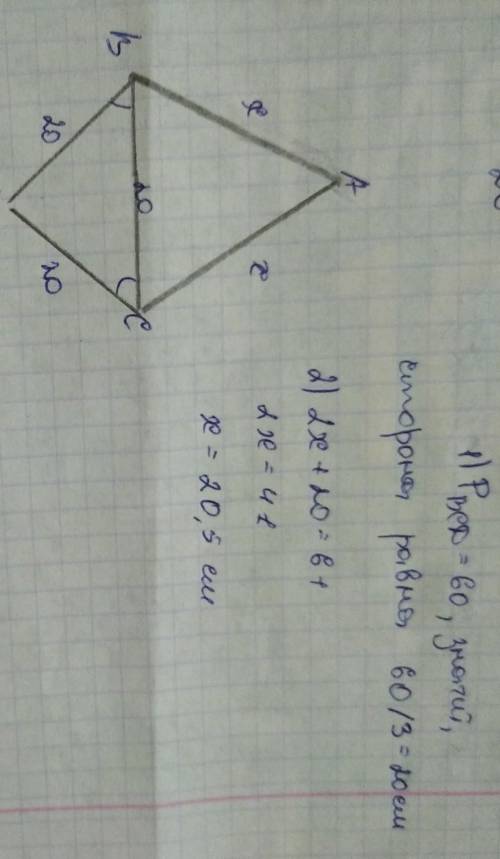 A
x
x
B
20
C
20
20
1) P BCD = 60, значит,
сторона равна 60/3 = 20 см
2) 2x + 20 = 61
2x = 41
x = 20,5 см